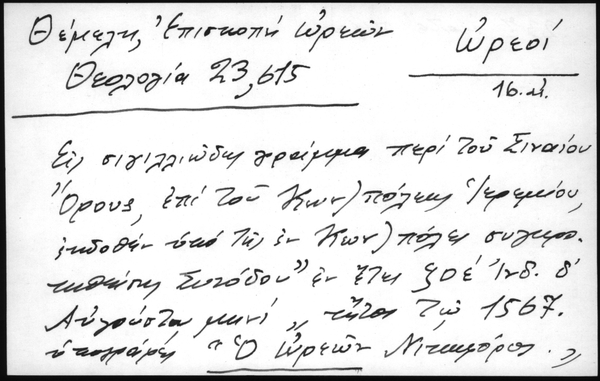 Θέμελη, Ἐπισκοπή Ὠρεῶν
Θεολογία 23,615
Ὠρεοί
16.αἰ.
Εἰς σιγιλλιῶδες γράμμα περί τοῦ Σιναίου
Ὄρους, ἐπί τοῦ Κων)πόλεως Ἱερεμίου,
ἐκδοθέν ὑπό τῆς ἐν Κων)πόλει συγκρο-
τηθείσης Συνόδου" ἐν ἔτει ζοέ Ἰνδ. δ'
Αὐγούστου μηνί " ἤτοι τῷ 1567.
ὑπογράφει "Ὁ Ὠρεῶν Νικηφόρος."